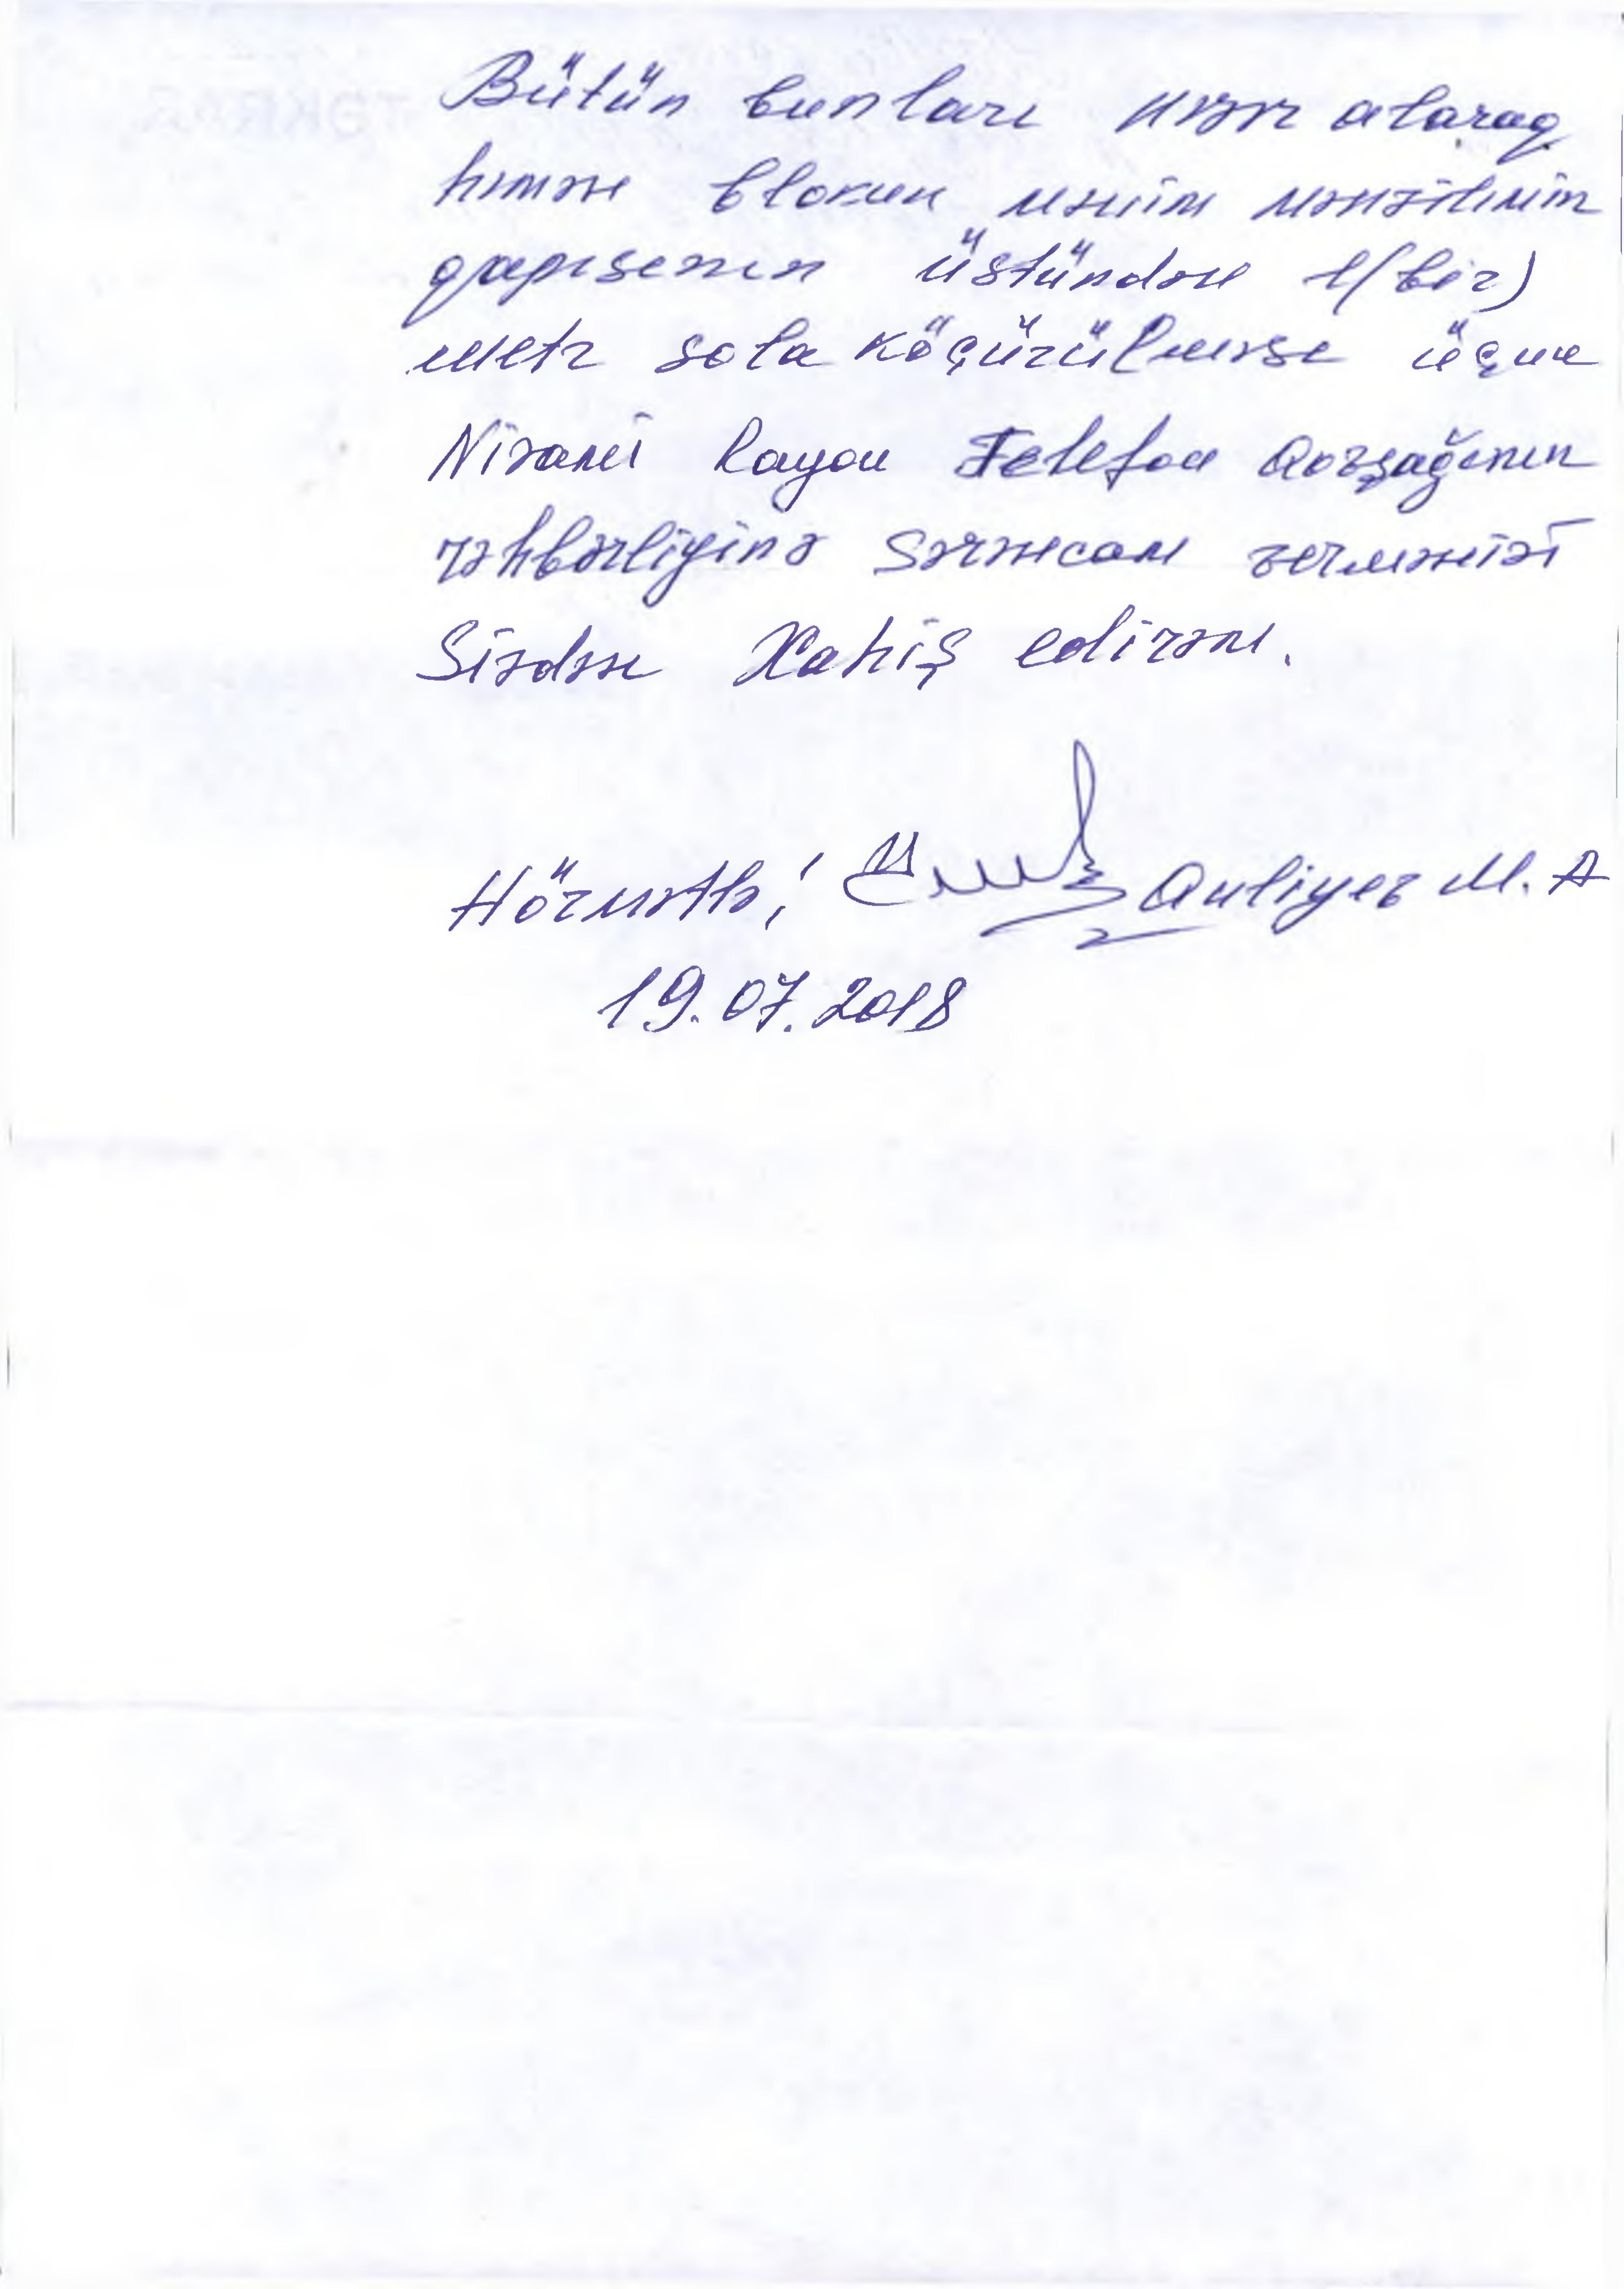 Bütün bunları nəzər alaraq
həmən blokun mənim mənzilimin
qapısının üstündən 1(bir)
metr sola köçürülməsi üçün
Nizami Rayon Telefon Qovşağının
rəhbərliyinə sərəncam vermənizi
Sizdən Xahiş edirəm.
Hörmətlə! Quliyev M. A
19.07.2018